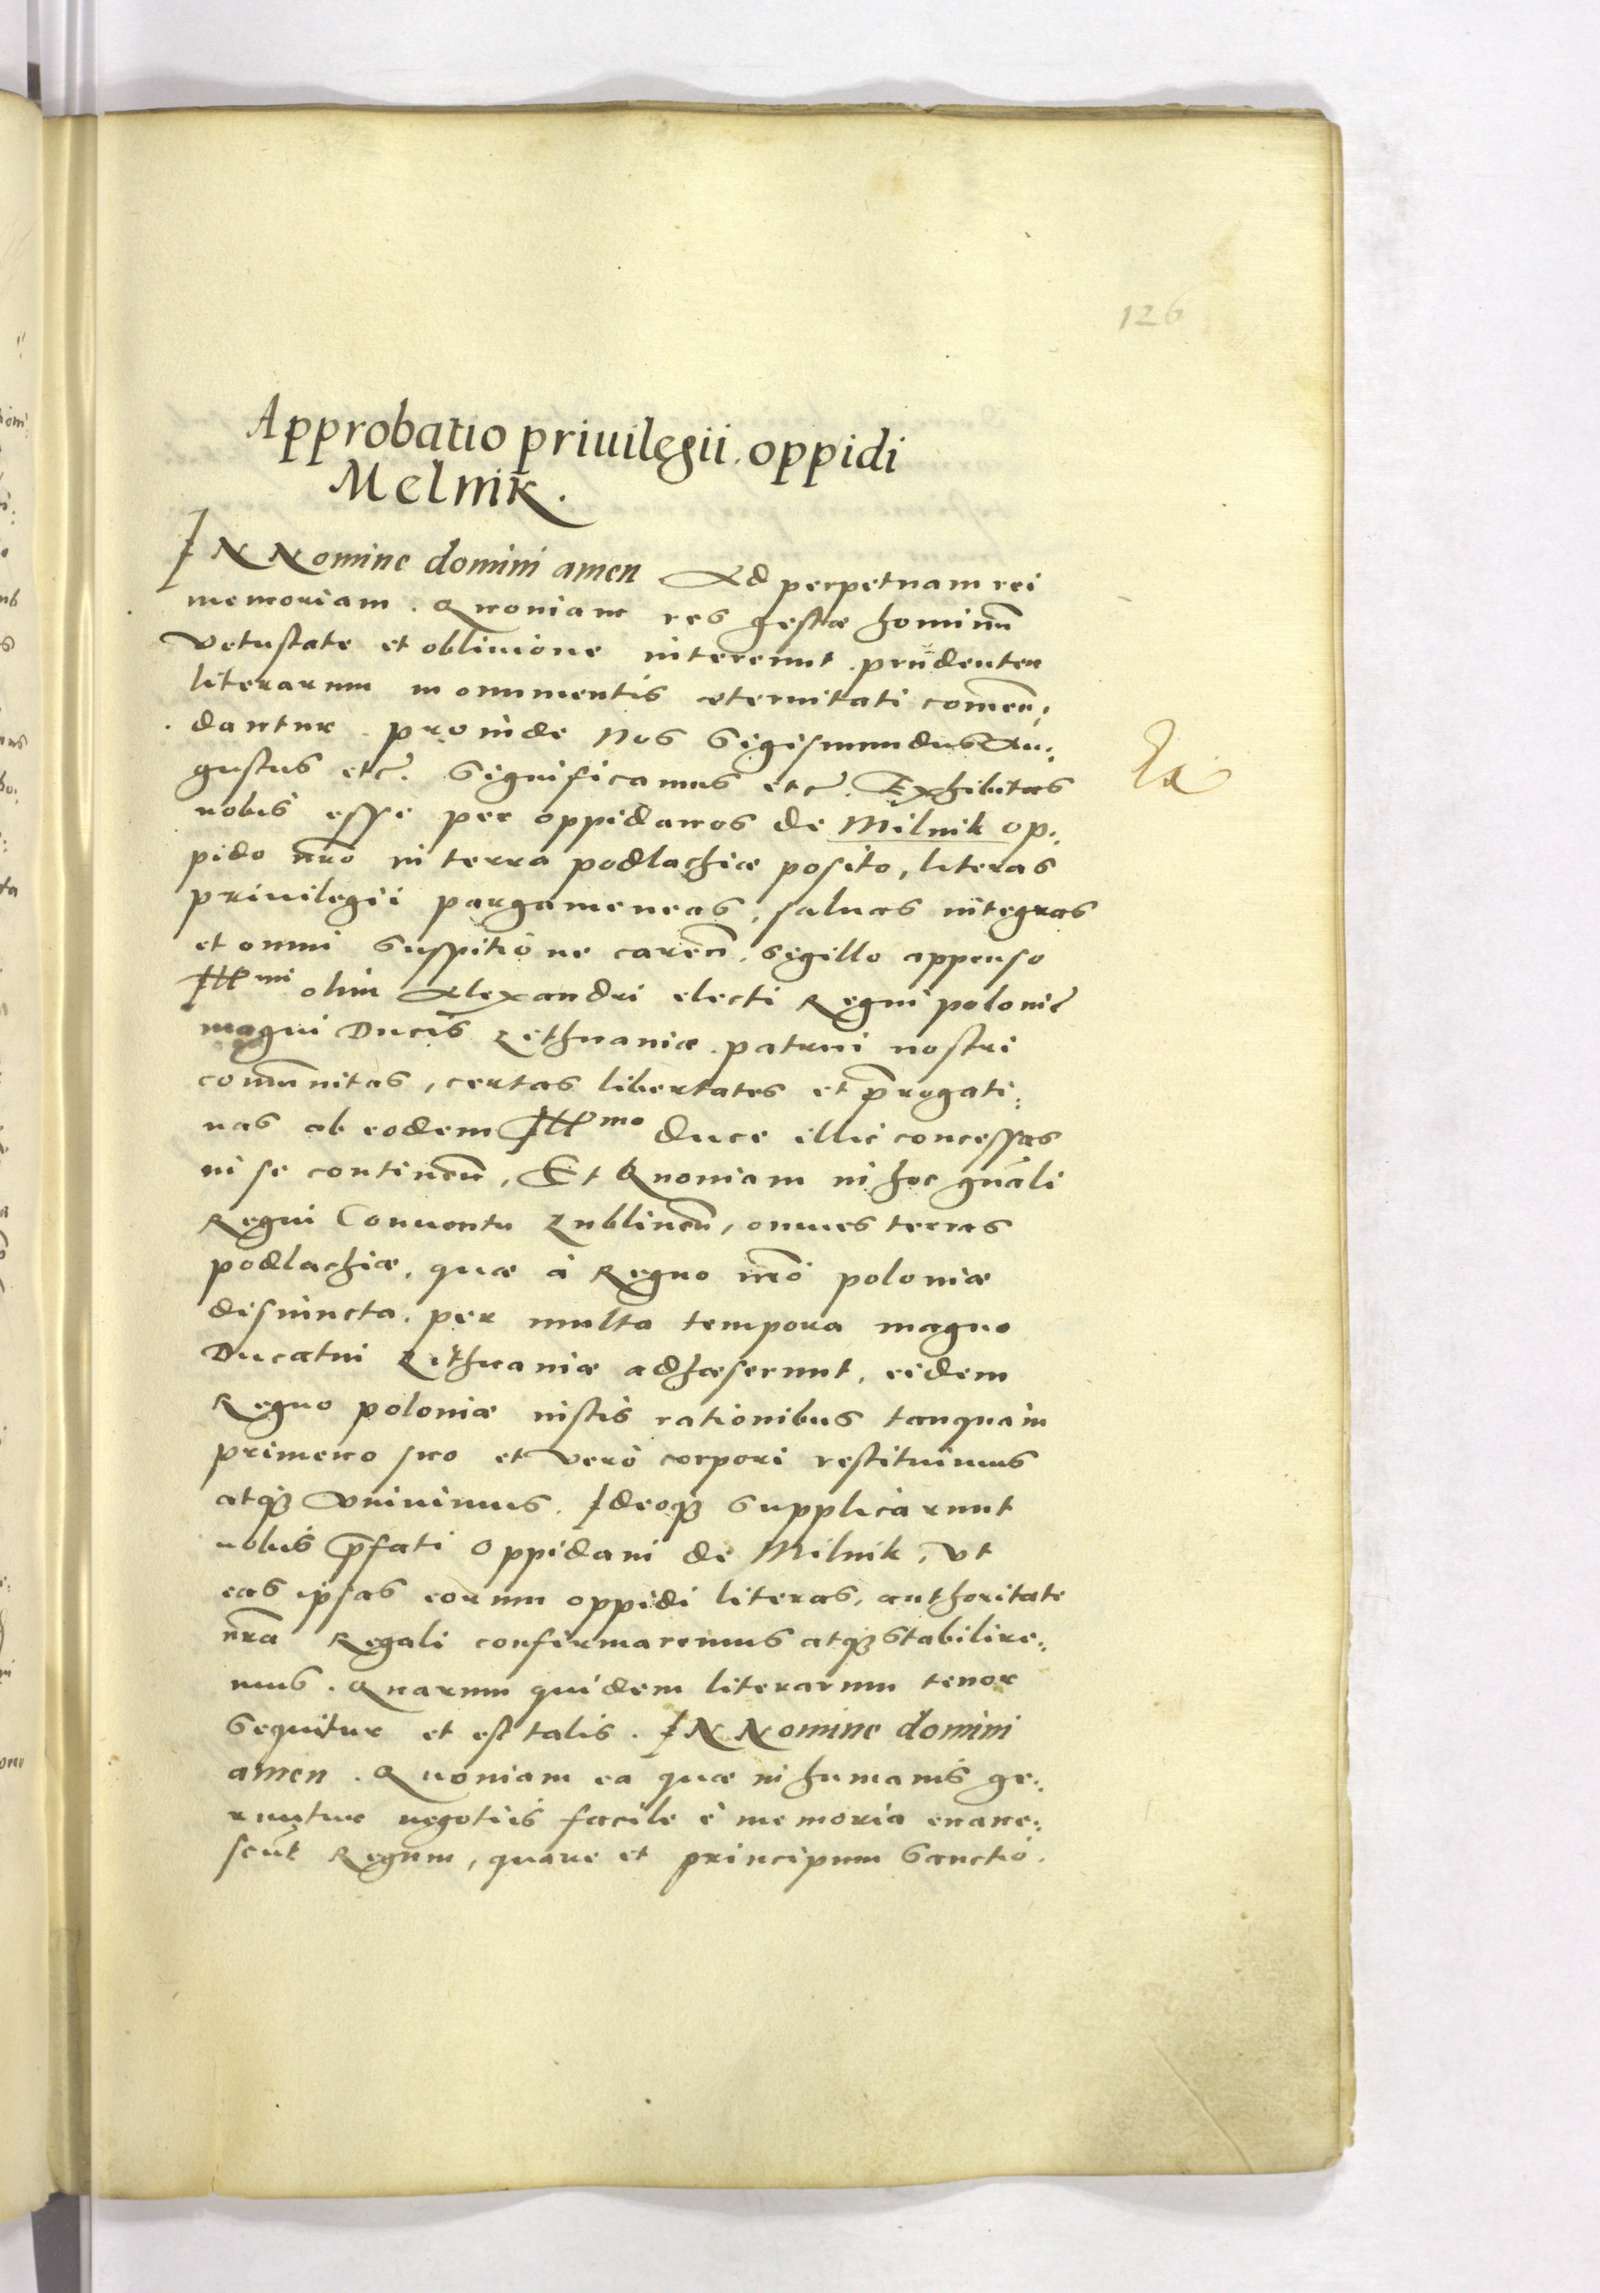 126
Approbatio priuilegii oppidi
Melnik.
IN Nomine domini amen Ad perpetuam rei
memoriam. Quoniam res gestæ hominū
vetustate et obliuione intereunt prudenter
literarum monumentis æternitati comēn,
dantur. proinde Nos Sigismundus Au,
gustus etc̃. Significamus etc̃. Exhibitas
nobis esse per oppidanos de Milnik op,
pido nr̃o in terra podlachiæ posito, literas
priuilegii pargameneas, saluas integras
et omni suspitione careñ. sigillo appenso
Illmi olim Alexandri electi Regni polonie͂
magni Ducis Lithuaniæ. patrui nostri
comūnitas, certas libertates et p̃rogati,
uas ab eodem Illmo duce illic concessas
in se contineñ, Et Quoniam in hoc gnãli
Regni Conuentu Lublineñ, omnes terras
podlachiæ, quæ à Regno nr̃o poloniæ
disiuncta. per multa tempora magno
Ducatui Lithuaniæ adhæserunt, eidem
Regno poloniæ iustis rationibus tanquam
primeuo suo et vero corpori restituimus
atqꝫ vniuimus. Ideoqꝫ supplicarunt
nobis p̃fati Oppidani de Milnik, vt
eas ipsas eorum oppidi literas, authoritate
nr̃a Regali confirmaremus atqꝫ stabilire,
mus. Quarum quidem literarum tenor
sequitur et est talis. IN Nomine domini
amen. Quoniam ea quæ in humanis ge,
runtur negotiis facile è memoria euane,
scūt Regum, quare et principum sanctio.